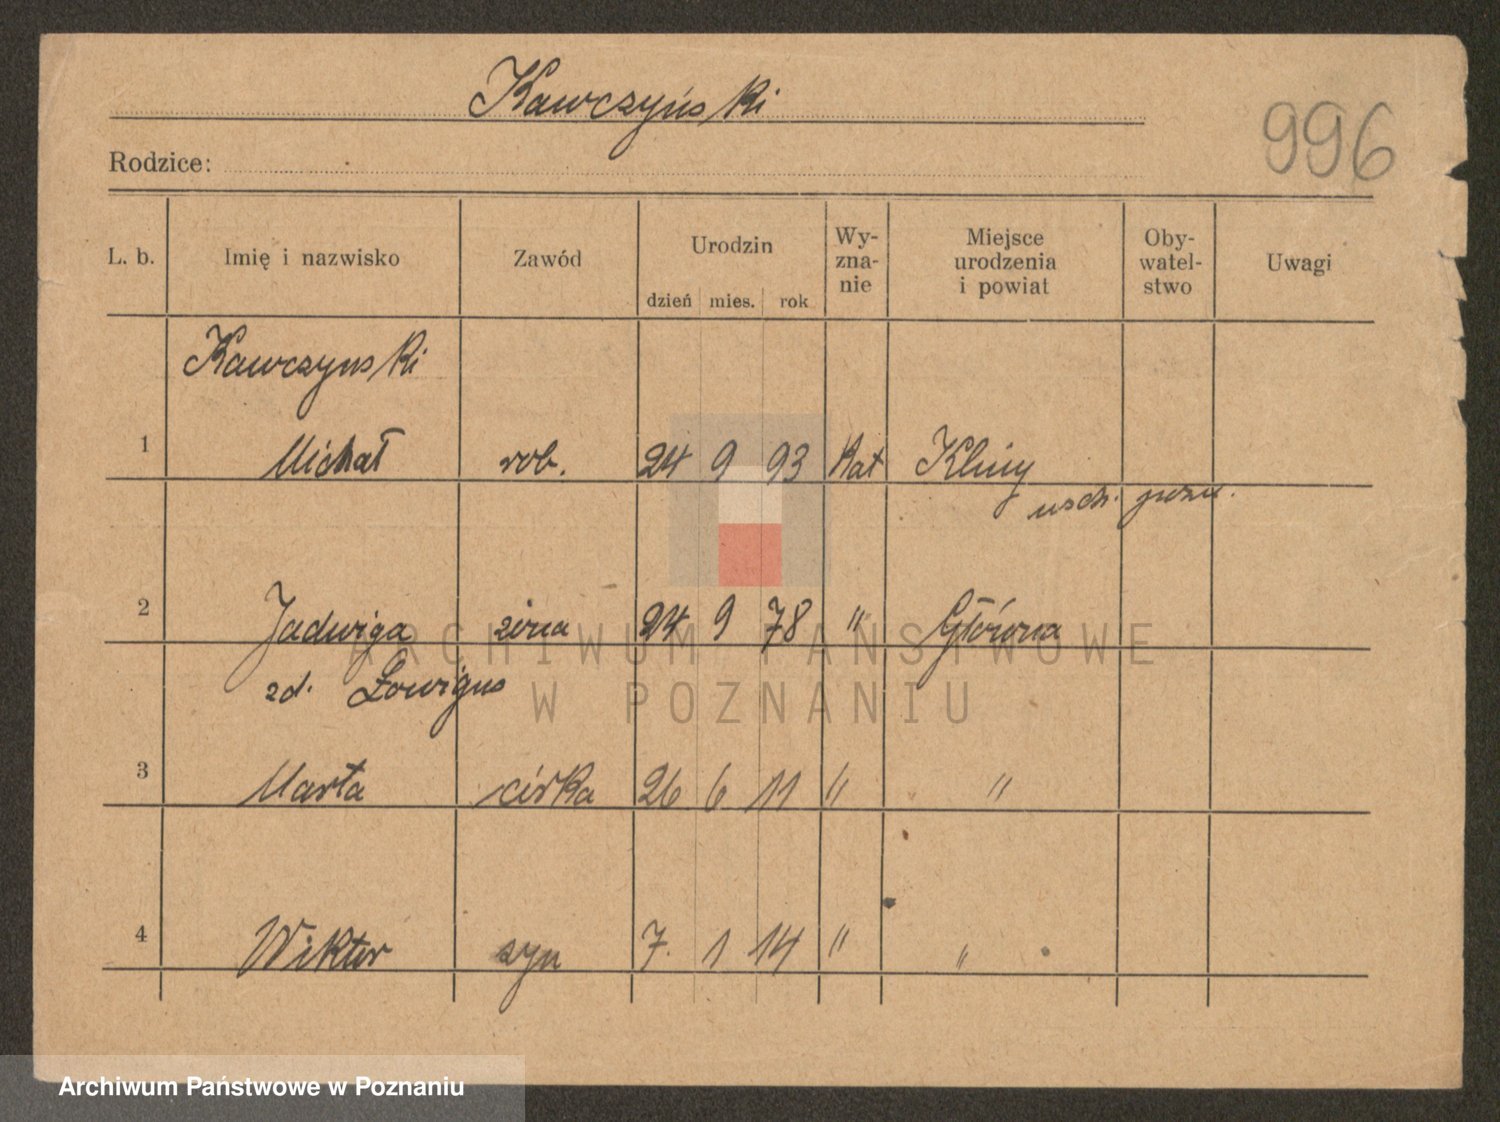 Kawczyński
996
Rodzice:
L. b. Imię i nazwisko Zawód Urodzin dzień mies. rok Wy-zna-nie Miejsce urodzenia i powiat Oby-watel-stwo Uwagi
Kawczynski
1 Michał rob. 24 9 93 Kat Kliny
wsch. pozn.
2 Jadwiga żona 24 9 78 " Główna
zd.
3 Marta córka 26 6 11 " "
4 Wiktor syn 7. 1 14 " "
ARCHIWUM PAŃSTWOWE
W POZNANIU
Archiwum Państwowe w Poznaniu